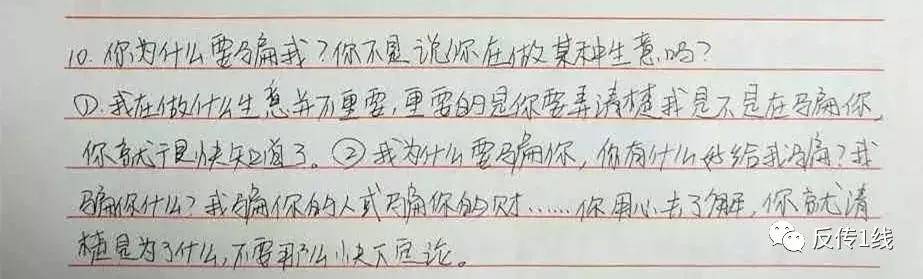 10. 你为什么要骗我?你不是说你在做某种生意吗?
①.我在做什么生意并不重要,重要的是你要弄清楚我是不是在骗你
你就于是快知道了。②我为什么要骗你,你有什么好给我骗?我
骗你什么?我骗你的人或骗你的财……你用心去了解,你就清
楚是为了什么,不要那么快下定论。
反传1线